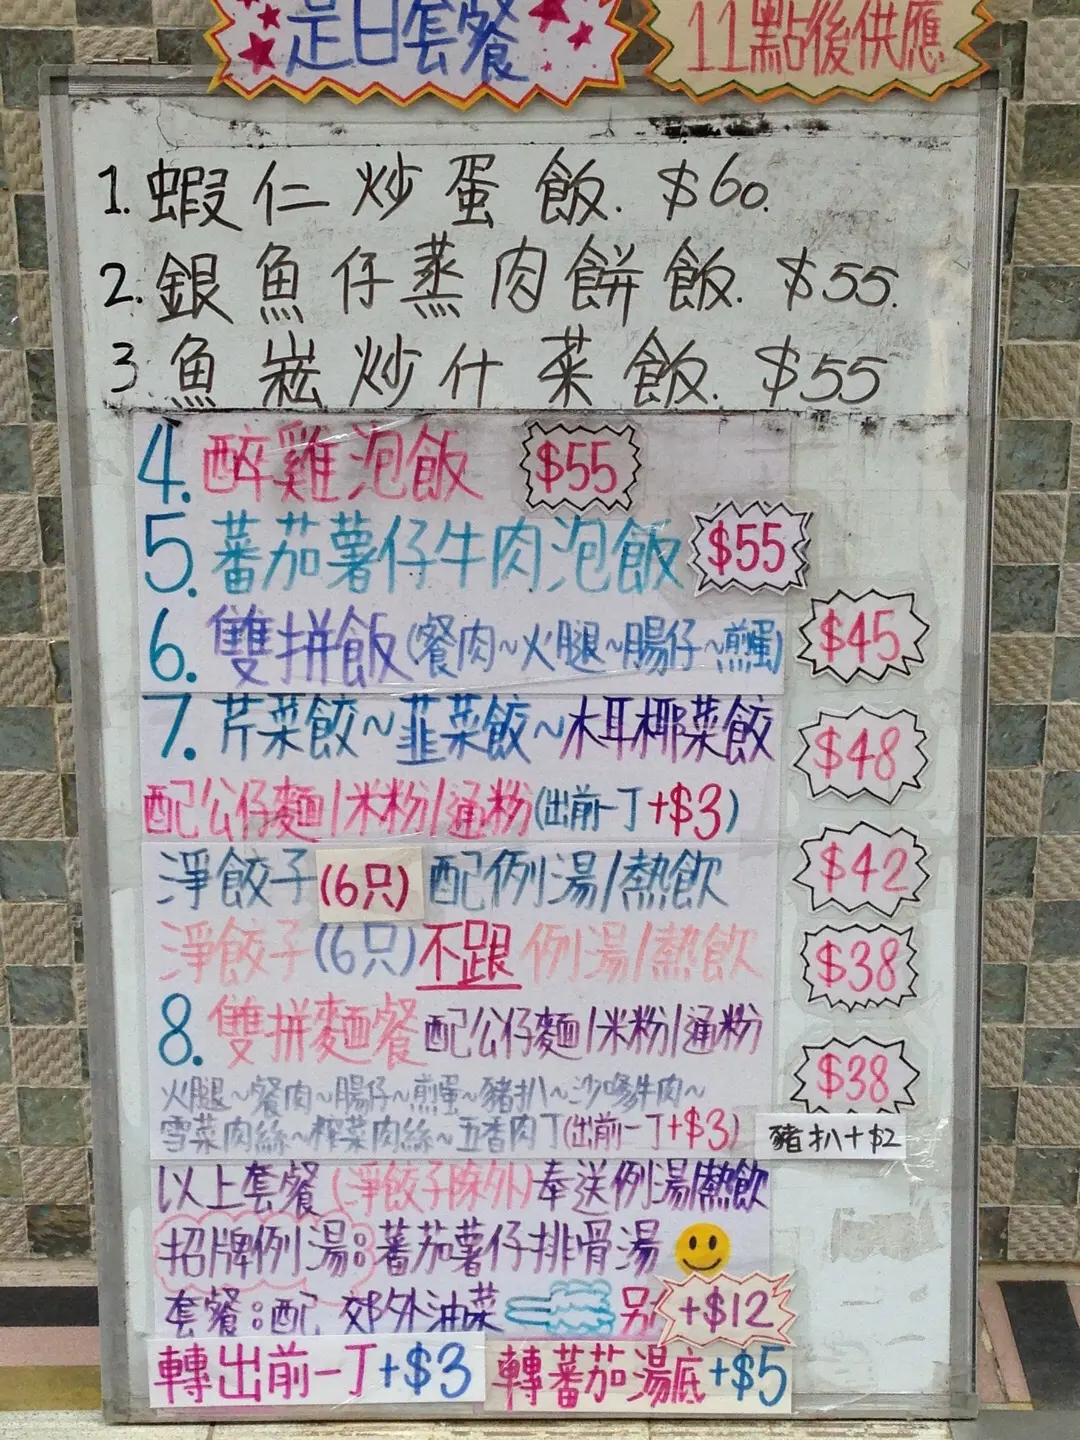 是日套餐
11點後供應
1. 蝦仁炒蛋飯. $60.
2. 銀魚仔蒸肉餅飯. $55.
3 魚崧炒什菜飯. $55
4. 醉雞泡飯 $55
5. 蕃茄薯仔牛肉泡飯 $55
6. 雙拼飯(餐肉~火腿~腸仔~煎蛋) $45
7. 芹菜餃~韮菜餃~木耳椰菜餃 $48
配公仔麵/米粉/通粉(出前一丁+$3)
淨餃子(6只)配例湯/熱飲 $42
淨餃子(6只)不跟例湯/熱飲 $38
8. 雙拼麵餐配公仔麵/米粉/通粉 $38
火腿~餐肉~腸仔~煎蛋~豬扒~沙嗲牛肉~
雪菜肉絲~榨菜肉絲~五香肉丁(出前一丁+$3) 豬扒+$2
以上套餐(淨餃子除外)奉送例湯/熱飲
招牌例湯:蕃茄薯仔排骨湯
套餐:配 郊外油菜 另 +$12
轉出前一丁+$3
轉蕃茄湯底+$5